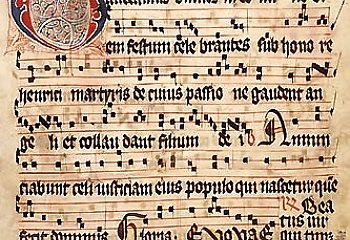 em festum cele brantes sub hono re
henrici martyris de cuius passio ne gaudent an
ge li et collau dant filium de i Annun
ciabunt celi iusticiam eius populo qui nascetur que
Bea
fecit dominus Gloria Euouae tus uir